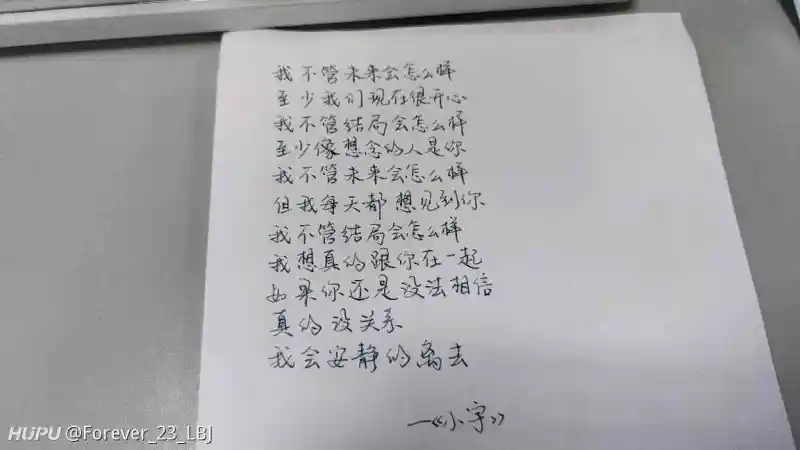 我不管未来会怎么样
至少我们现在很开心
我不管结局会怎么样
至少像想念的人是你
我不管未来会怎么样
但我每天都想见到你
我不管结局会怎么样
我想真的跟你在一起
如果你还是没法相信
真的没关系
我会安静的离去
—《小宇》
HUPU @Forever_23_LBJ